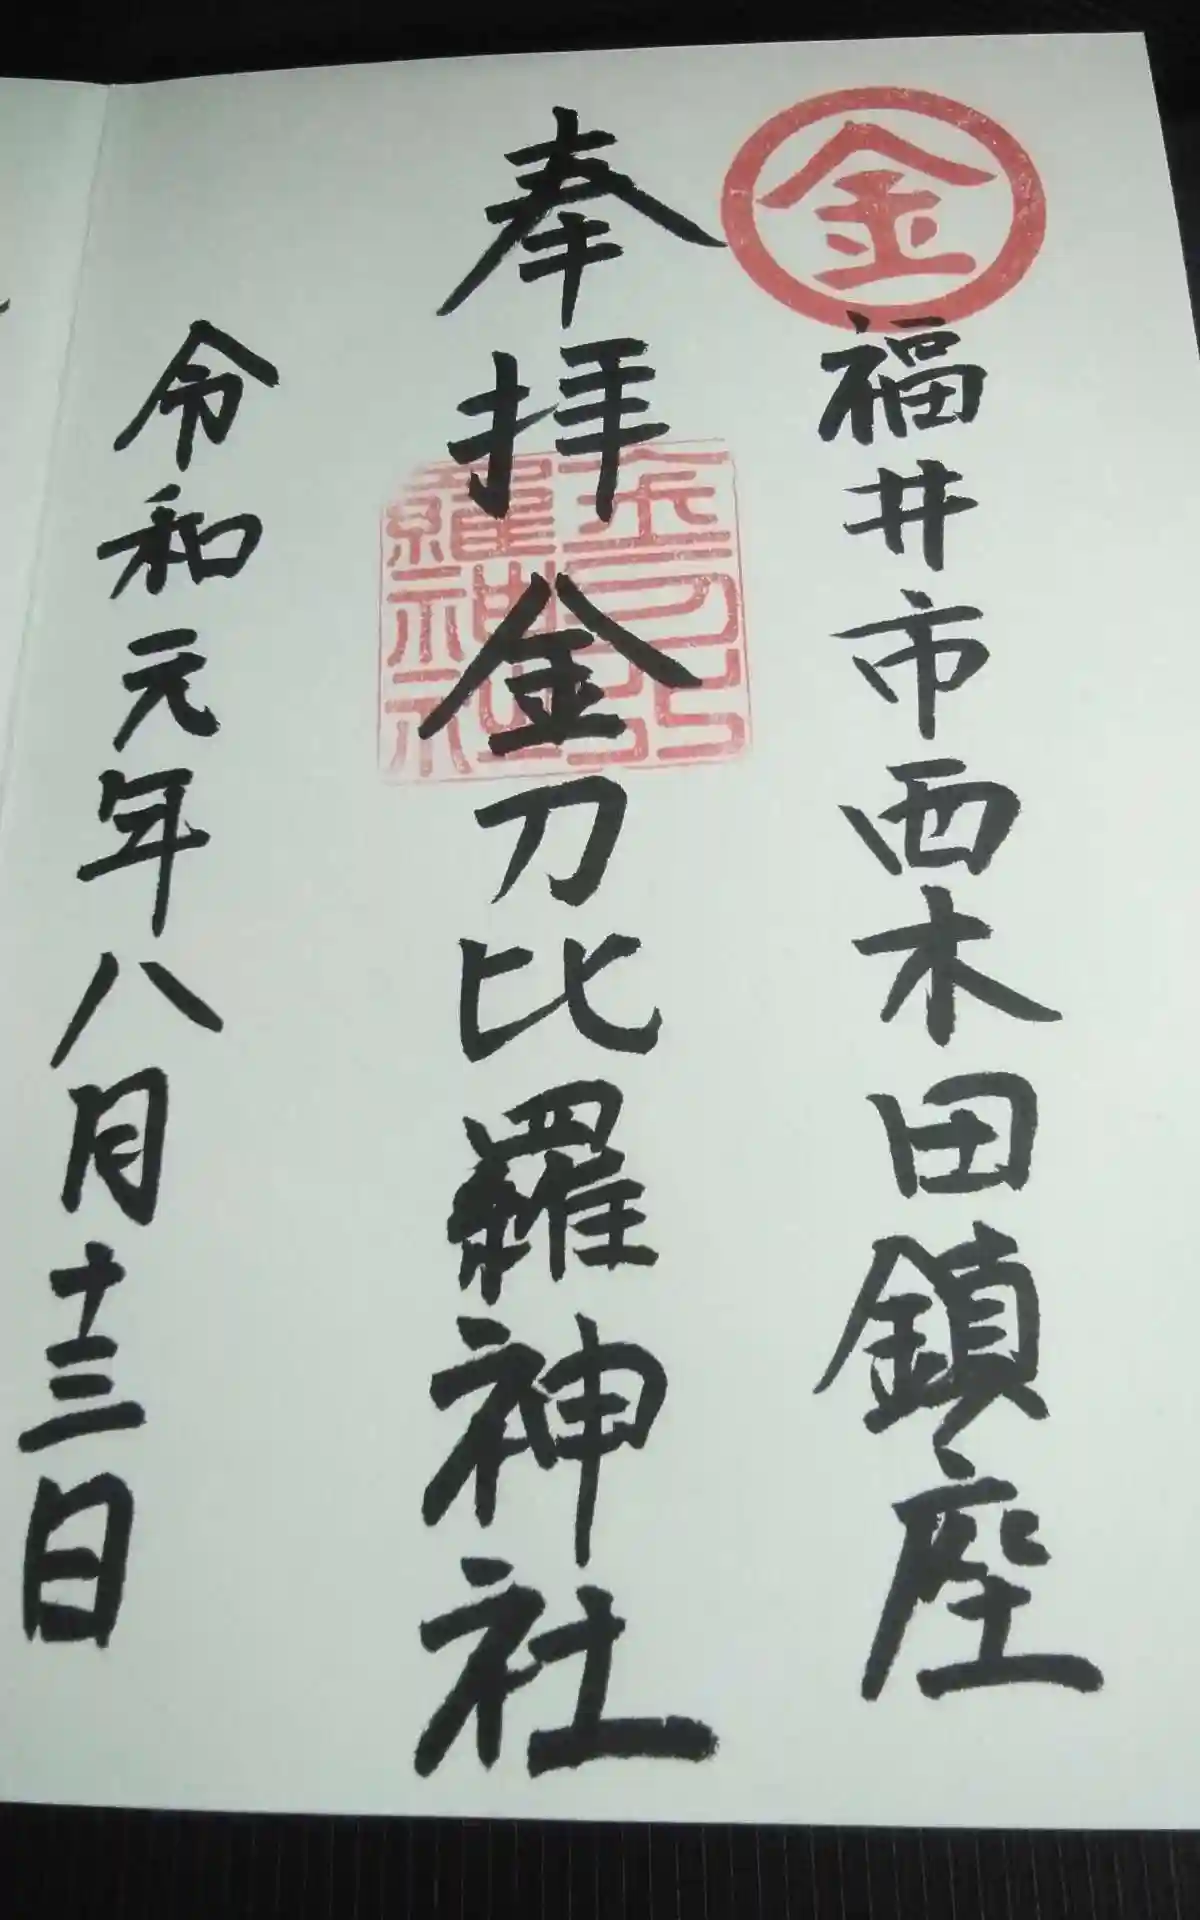 金
福井市西木田鎮座
奉拝金刀比羅神社
金刀比
羅神社
令和元年八月十三日